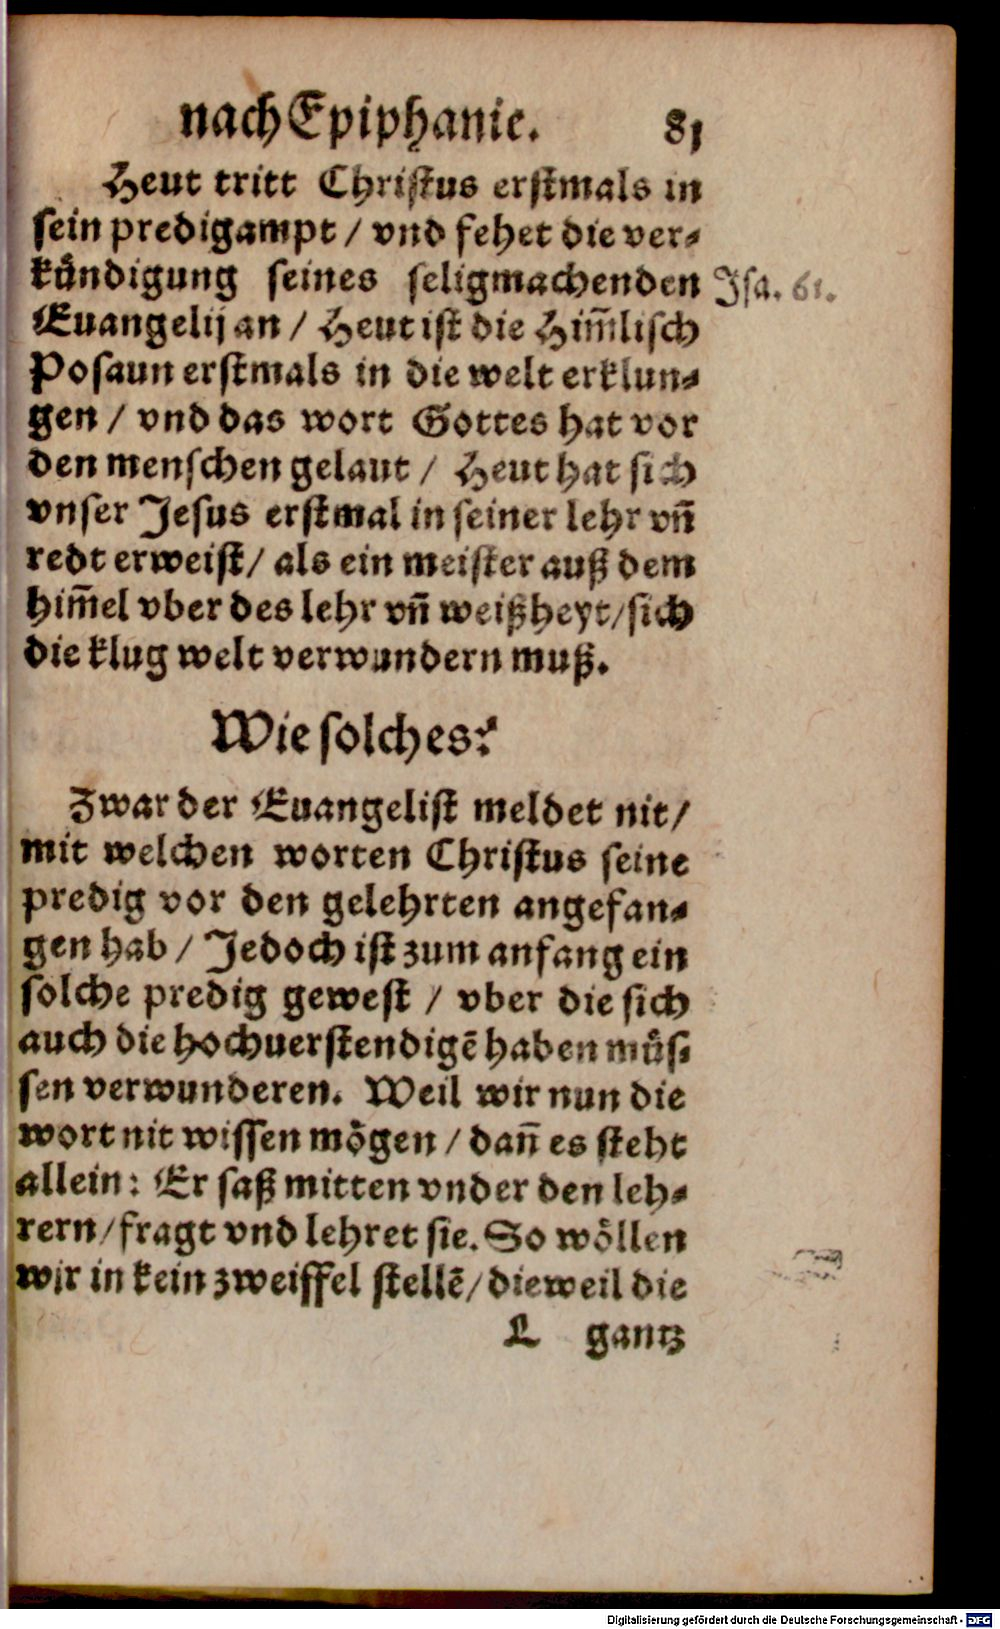 nach Epiphanie. 81
Heut tritt Christus erstmals in
sein predigampt / vnd fehet die ver⸗
kündigung seines seligmachenden
Isa. 61.
Euangelij an / Heut ist die Him̃lisch
Posaun erstmals in die welt erklun⸗
gen / vnd das wort Gottes hat vor
den menschen gelaut / Heut hat sich
vnser Jesus erstmal in seiner lehr vñ
redt erweist / als ein meister auß dem
him̃el vber des lehr vñ weißheyt / sich
die klug welt verwundern muß.
Wie solches?
Zwar der Euangelist meldet nit /
mit welchen worten Christus seine
predig vor den gelehrten angefan⸗
gen hab / Jedoch ist zum anfang ein
solche predig gewest / vber die sich
auch die hochuerstendigẽ haben müs⸗
sen verwunderen. Weil wir nun die
wort nit wissen mögen / dañ es steht
allein: Er saß mitten vnder den leh⸗
rern / fragt vnd lehret sie. So wöllen
wir in kein zweiffel stellẽ / dieweil die
L gantz
Digitalisierung gefördert durch die Deutsche Forschungsgemeinschaft - DFG